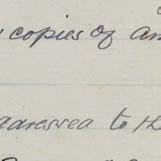 copies of an
addressed to th